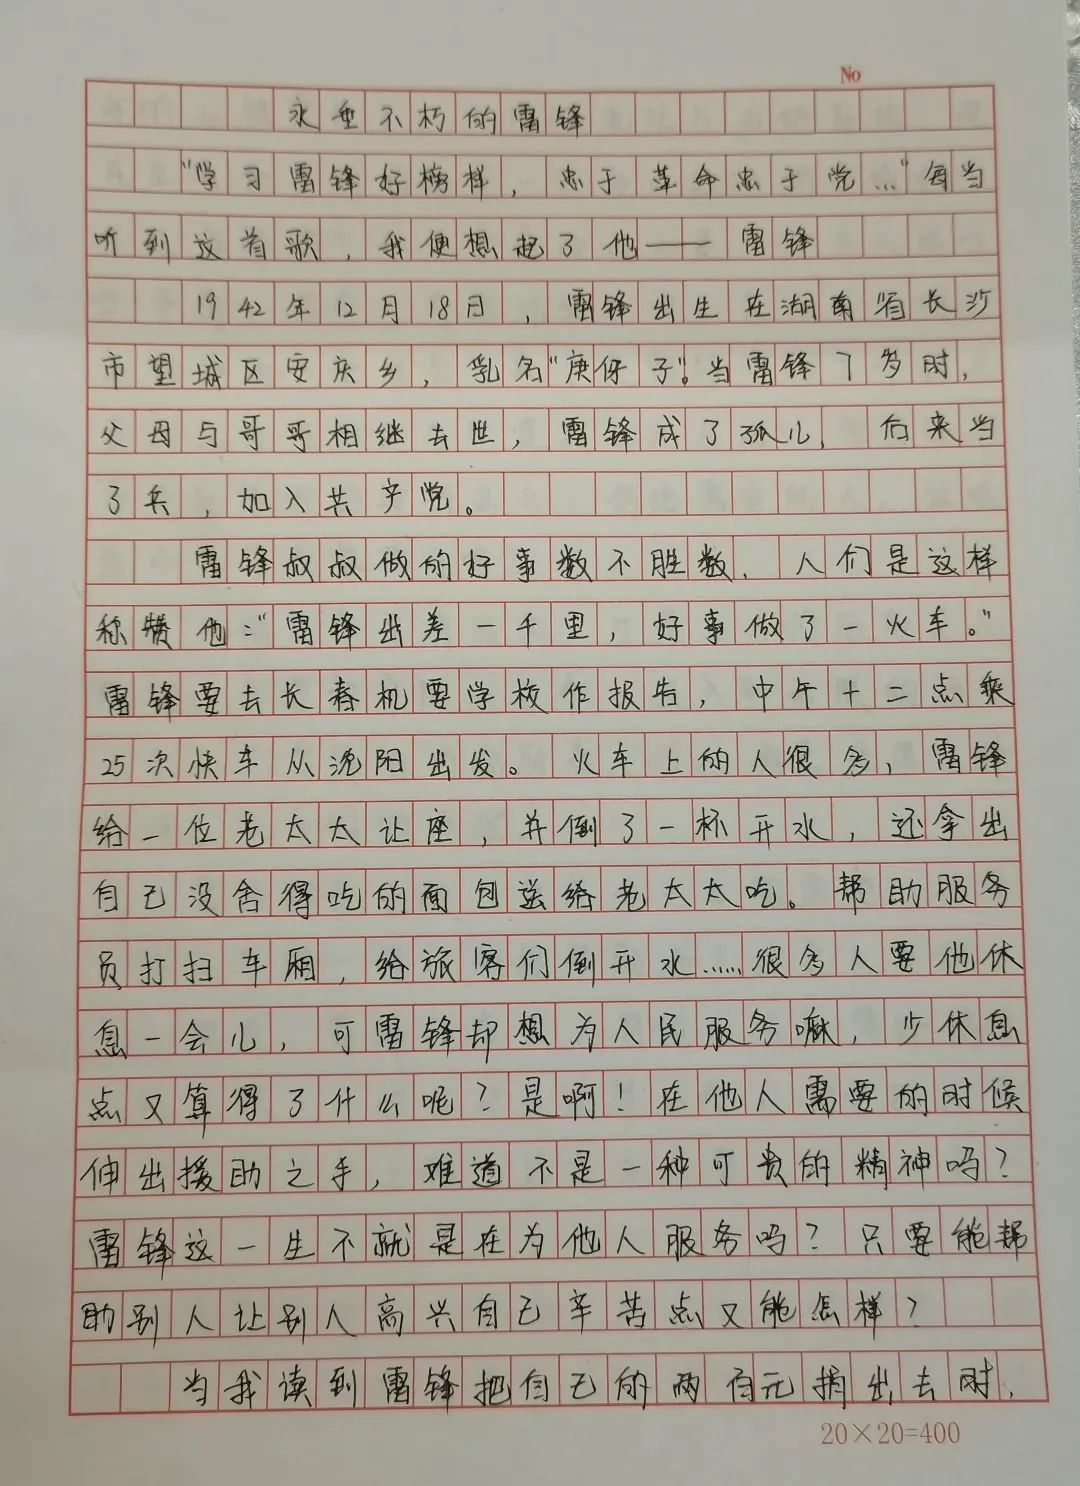 No
永垂不朽的雷锋
“学习雷锋好榜样，忠于革命忠于党…”每当
听到这首歌，我便想起了他——雷锋
1942年12月18日，雷锋出生在湖南省长沙
市望城区安庆乡，乳名“庚伢子”。当雷锋7岁时，
父母与哥哥相继去世，雷锋成了孤儿，后来当
了兵，加入共产党。
雷锋叔叔做的好事数不胜数．人们是这样
称赞他：“雷锋出差一千里，好事做了一火车。”
雷锋要去长春机要学校作报告，中午十二点乘
25次快车从沈阳出发。火车上的人很多，雷锋
给一位老太太让座，并倒了一杯开水，还拿出
自己没舍得吃的面包送给老太太吃。帮助服务
员打扫车厢，给旅客们倒开水……很多人要他休
息一会儿，可雷锋却想为人民服务嘛，少休息
点又算得了什么呢？是啊！在他人需要的时候
伸出援助之手，难道不是一种可贵的精神吗？
雷锋这一生不就是在为他人服务吗？只要能帮
助别人让别人高兴自己辛苦点又能怎样？
当我读到雷锋把自己的两百元捐出去时，
20×20=400